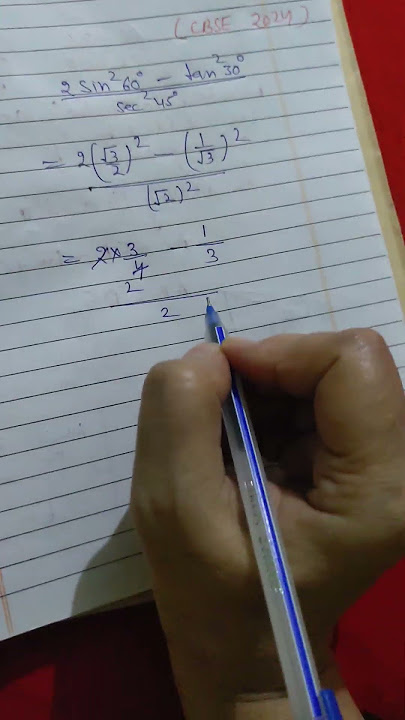 (CBSE 2024)
2 sin²60° − tan²30°
sec²45°
= 2(√3/2)² − (1/√3)²
(√2)²
= 2 × 3/4 − 1/3
2
2